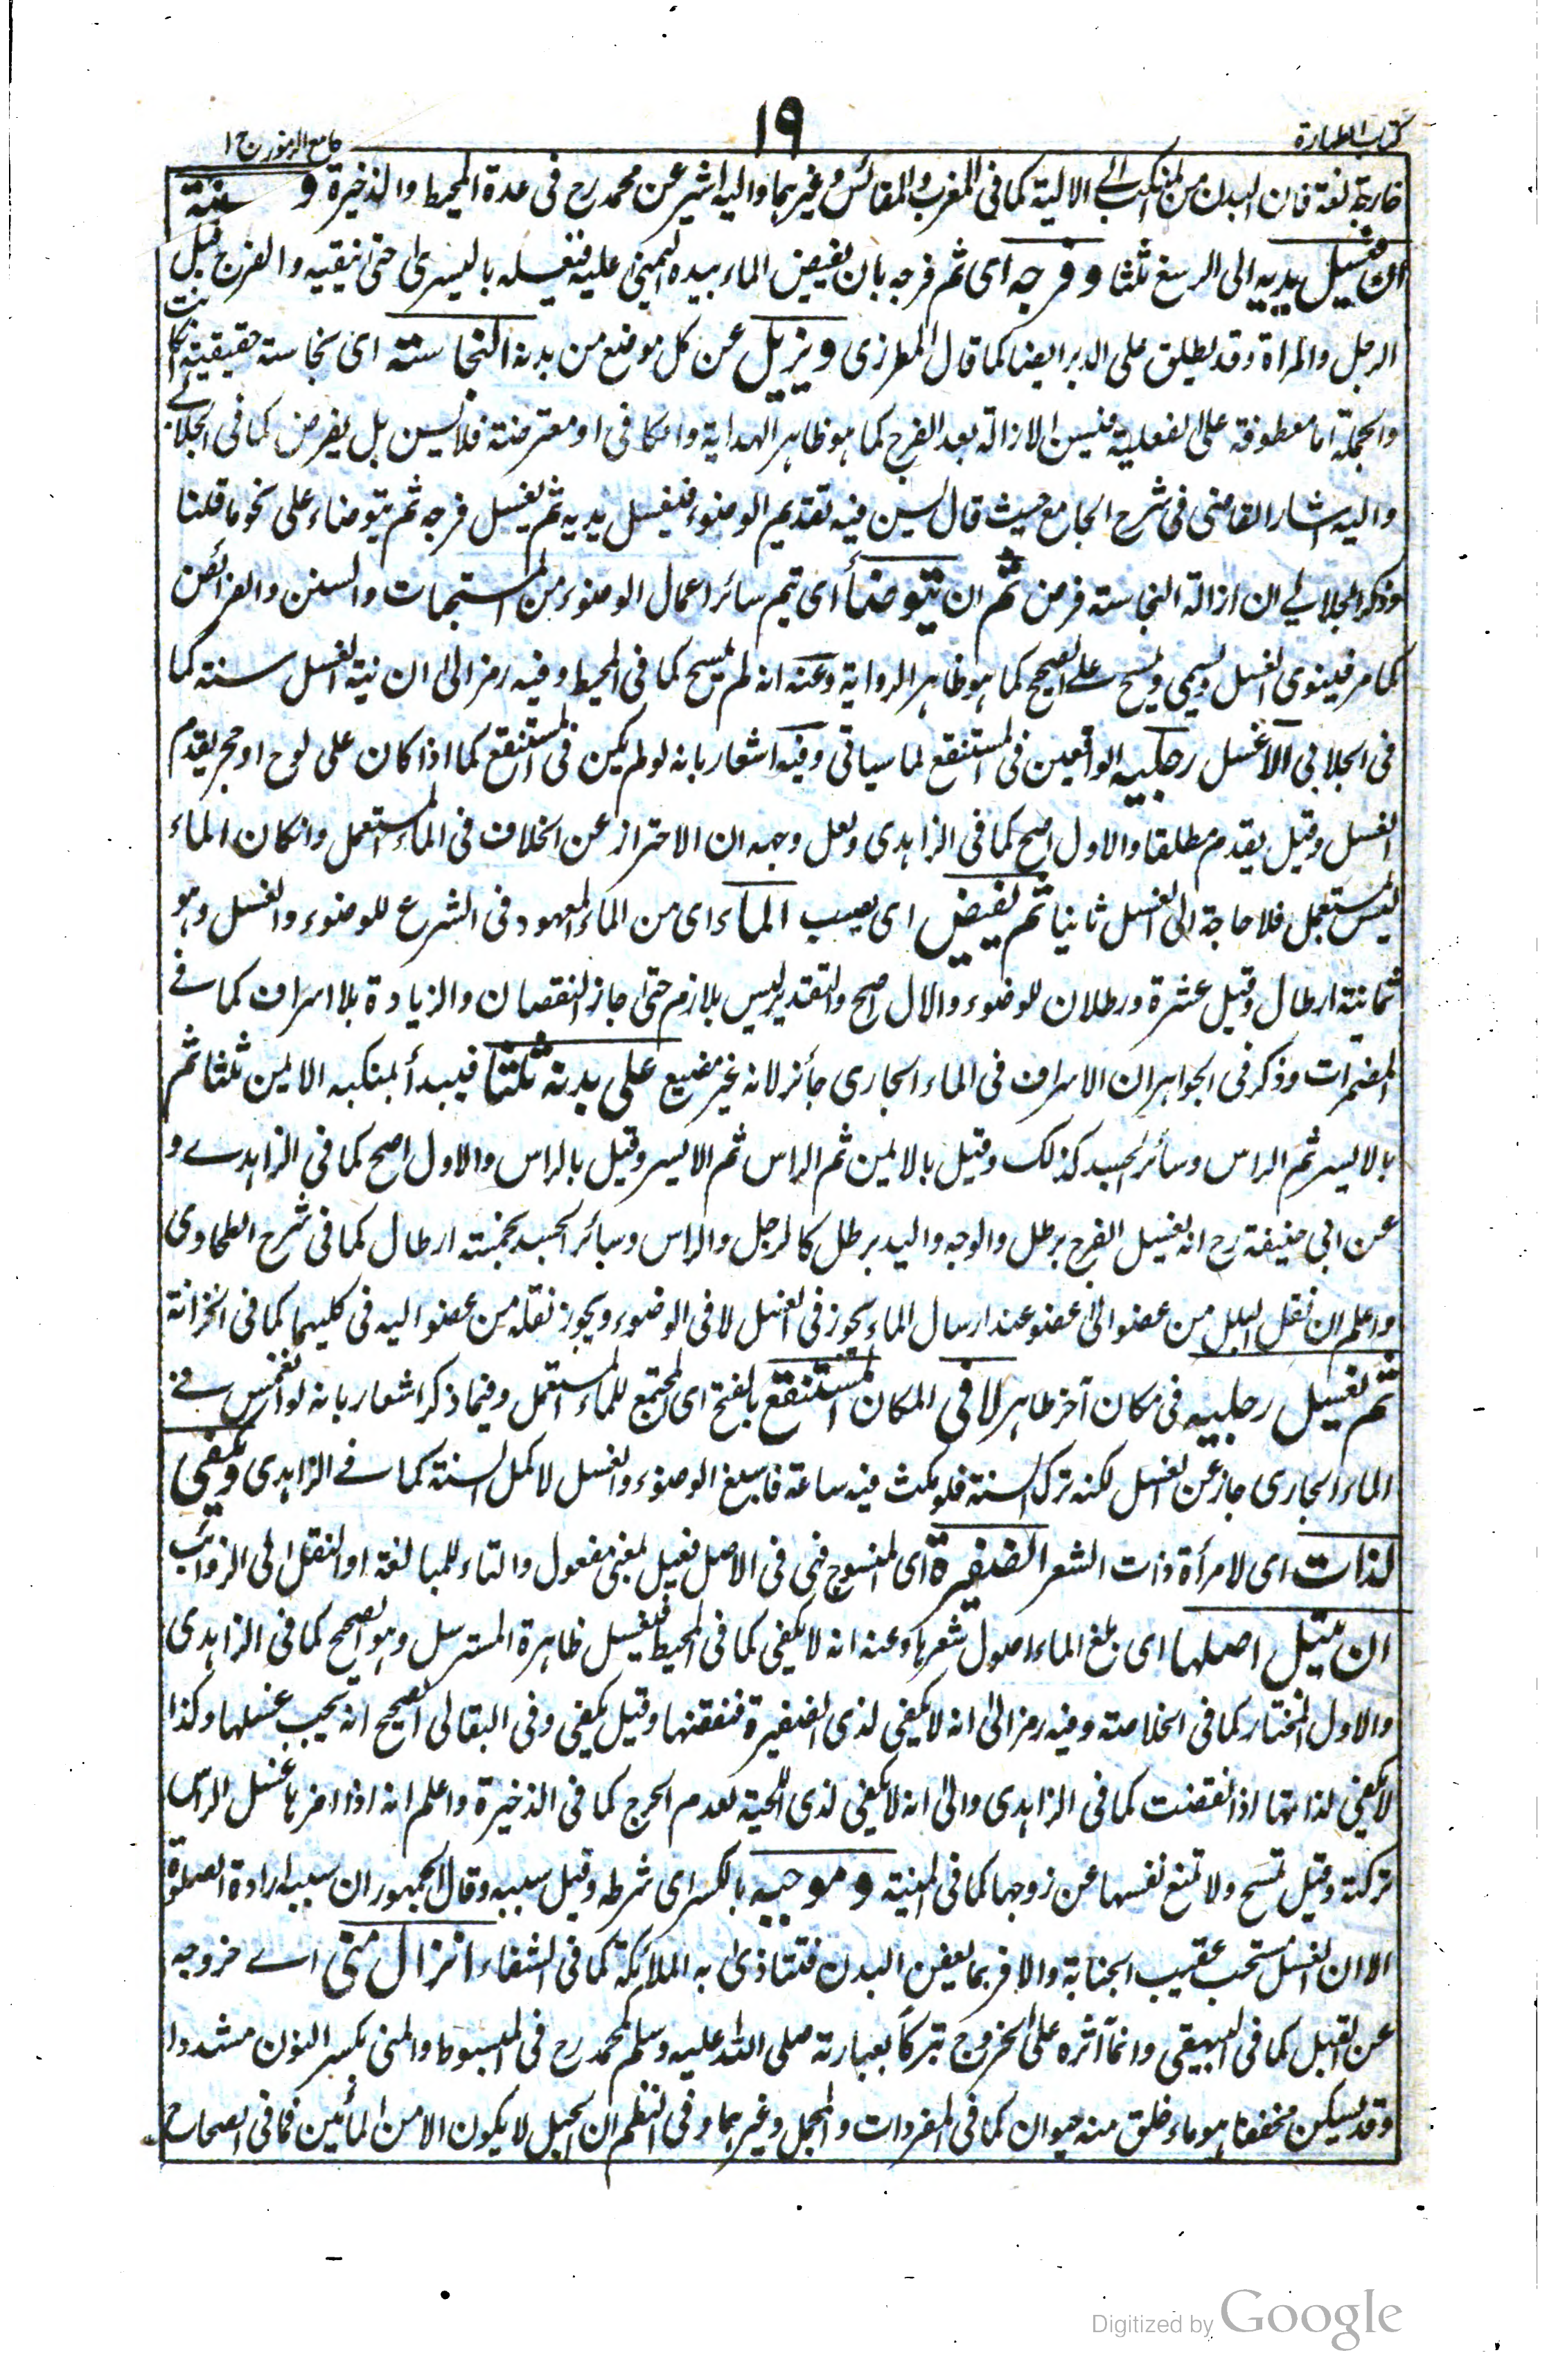 كتاب الطهارة
١٩
جامع الرموز ج ١
خارجة لغة فان البدن من المنكب الى الالية كما فى المغرب والمقائس وغيرهما واليه اشير عن محمد رح فى عدة المحيط والذخيرة و سنته
ان يغسل يديه الى الرسغ ثلثا وفرجه اى ثم فرجه بان يفيض الماء بيده اليمنى عليه فيغسله باليسرى حتى ينقيه والفرج قبل
الرجل والمراة وقد يطلق على الدبر ايضا كما قال المطرزى ويزيل عن كل موضع من بدنه النجاسته اى نجاسته حقيقية كانت
والجملة اما معطوفة على الفعلية فيسن الازالة بعد الفرج كما هو ظاهر الهداية والكافى او معترضة فلا يسن بل يفرض كما فى الجلابى
واليه اشار القاضى فى شرح الجامع حيث قال يسن فيه تقديم الوضوء فيغسل يديه ثم يغسل فرجه ثم يتوضاء على نحو ما قلنا
وذكر الجلابى ان ازالة النجاسته فرض ثم ان يتوضأ اى يتم سائر اعمال الوضوء من المستحبات والسنن والفرائض
كما مر فينوى الغسل ويسمى ويمسح على الصحيح كما هو ظاهر الرواية وعنه انه لم يمسح كما فى المحيط وفيه رمز الى ان نية الغسل سنته كما
فى الجلابى الا غسل رجليه الواقعين فى المستنقع لما سياتى وفيه اشعار بانه لو لم يكن فى المستنقع كما اذا كان على لوح او حجر يقدم
الغسل وقيل يقدم مطلقا والاول اصح كما فى الزاهدى ولعل وجهه ان الاحتراز عن الخلاف فى الماء المستعمل وان كان الماء
ليس بمستعمل فلا حاجة الى الغسل ثانيا ثم يفيض اى يصب الماء اى من الماء المعهود فى الشرع للوضوء والغسل وهو
ثمانية ارطال وقيل عشرة ورطلان للوضوء والاول اصح والتقدير ليس بلازم حتى جاز النقصان والزيادة بلا اسراف كما فى
المضمرات وذكر فى الجواهر ان الاسراف فى الماء الجارى جائز لانه غير مضيع على بدنه ثلثا فيبدأ بمنكبه الايمن ثلثا ثم
بالايسر ثم الراس وسائر الجسد كذلك وقيل بالايمن ثم الراس ثم الايسر وقيل بالراس والاول اصح كما فى الزاهدى و
عن ابى حنيفة رح انه يغسل الفرج برطل والوجه واليد برطل كالرجل والراس وسائر الجسد بخمسته ارطال كما فى شرح الطحاوى
واعلم ان نقل البلل من عضو الى عضو عند ارسال الماء يجوز فى الغسل لا فى الوضوء ويجوز نقله من عضو اليه فى كليهما كما فى الخزانة
ثم يغسل رجليه فى مكان آخر طاهر لا فى المكان المستنقع بالفتح اى المجتمع للماء المستعمل وفيما ذكر اشعار بانه لو انغمس فى
الماء الجارى جاز عن الغسل لكنه ترك السنة فلو مكث فيه ساعة فاسبغ الوضوء والغسل لاكمل السنة كما فى الزاهدى ويكفى
لذات اى لامرأة ذات الشعر الضفيرة اى المنسوج فهى فى الاصل فعيل بمعنى مفعول والتاء للمبالغة او النقل الى الزوائب
ان يبتل اصلها اى بلغ الماء اصول شعرها وعنه انه لا يكفى كما فى المحيط فيغسل ظاهرة المسترسل وهو الصحيح كما فى الزاهدى
والاول المختار كما فى الخلاصته وفيه رمز الى انه لا يكفى لذى الضفيرة فنقضها وقيل يكفى وفى البقالى الصحيح انه يجب غسلها وكذا
لا يكفى لذاتها اذا نقضت كما فى الزاهدى والى انه لا يكفى لذى اللحية لعدم الحرج كما فى الذخيرة واعلم انه اذا اضرها غسل الراس
تركته وقيل تمسح ولا تمنع نفسها عن زوجها كما فى المنية وموجبه بالكسر اى شرطه وقيل سببه وقال الجمهور ان سببه ارادة الصلوة
الا ان الغسل مستحب عقيب الجنابة والا فربما يعفن البدن فتتاذى به الملائكة كما فى الشفاء انزال منى اى خروجه
عن القبل كما فى البيهقى وانما آثره على الخروج تبركا بعبارته صلى الله عليه وسلم لمحمد رح فى المبسوط والمنى بكسر النون مشددا
وقد يسكن مخففا هو ماء خلق منه حيوان كما فى المفردات والمجمل وغيرهما وفى النظم ان الحبل لا يكون الا من المائين فما فى الصحاح
Digitized by Google